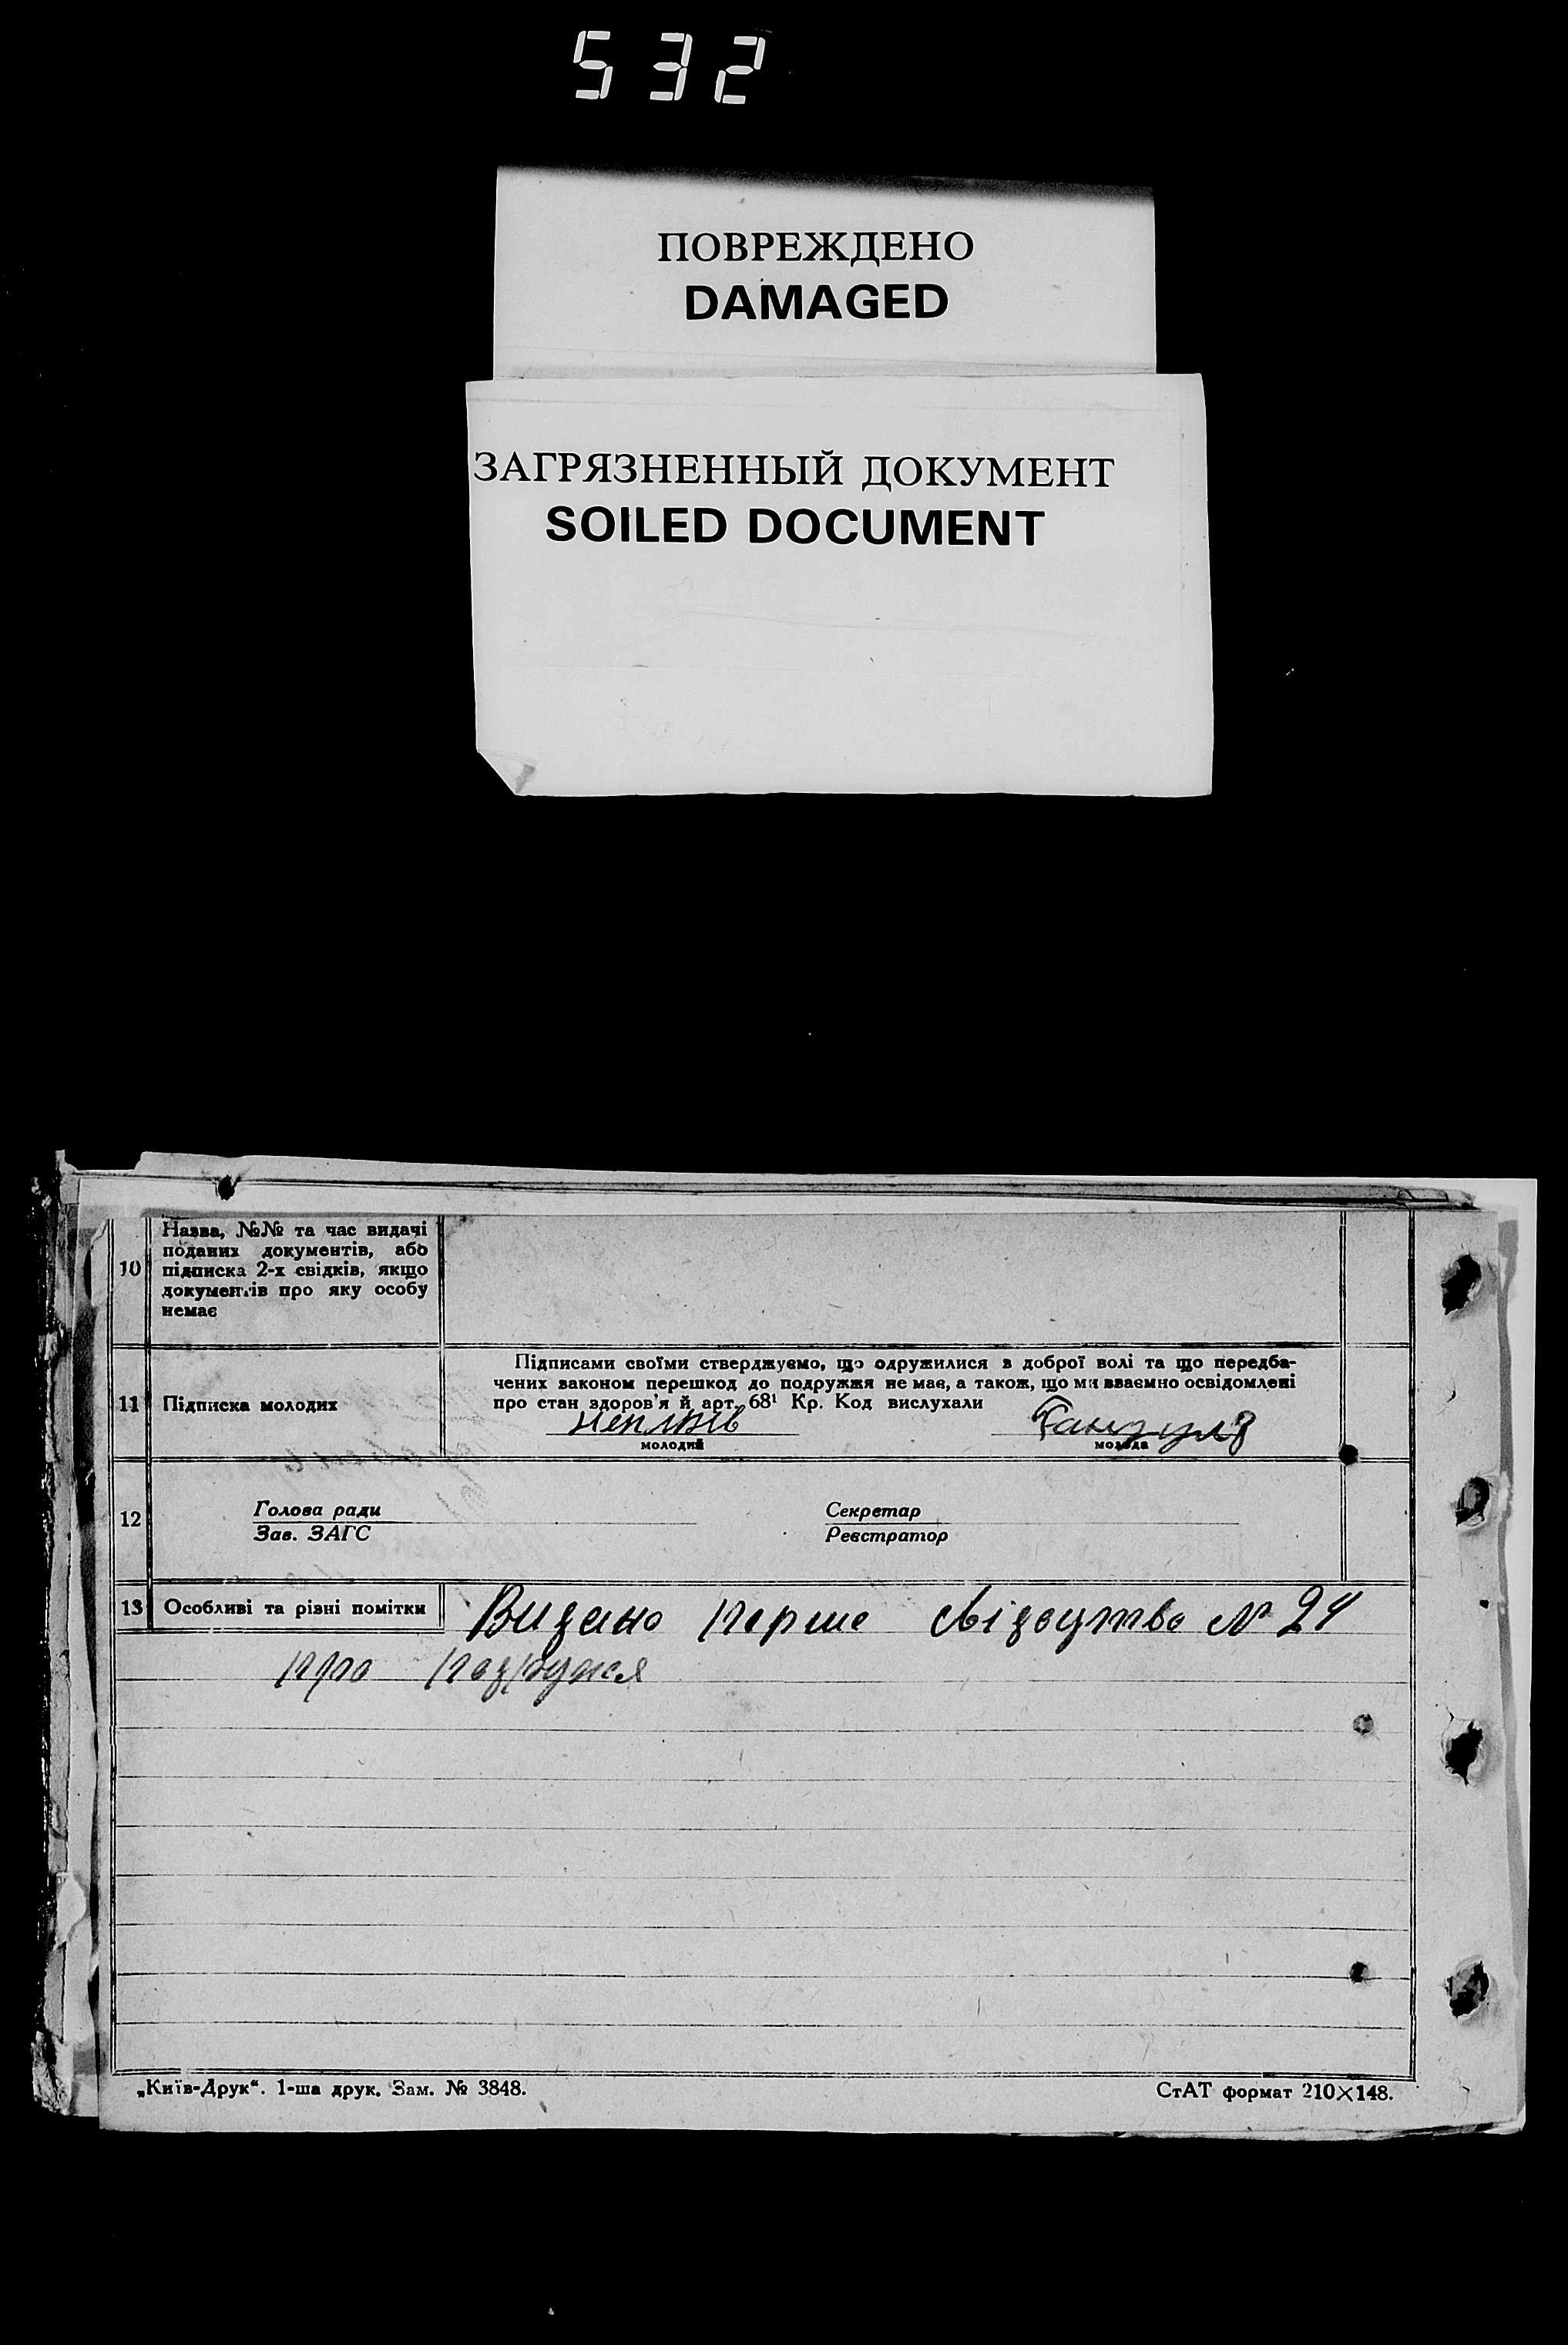 532
ПОВРЕЖДЕНО
DAMAGED
ЗАГРЯЗНЕННЫЙ ДОКУМЕНТ
SOILED DOCUMENT
10
Назва, №№ та час видачі
поданих документів, або
підписка 2-х свідків, якщо
документів про яку особу
немає
11
Підписка молодих
Підписами своїми стверджуємо, що одружилися з доброї волі та що передба-
чених законом перешкод до подружжя не має, а також, що ми взаємно освідомлені
про стан здоров'я й арт. 68¹ Кр. Код вислухали
молодий
молода
12
Голова ради
Зав. ЗАГС
Секретар
Реєстратор
13
Особливі та різні помітки
Видано перше свідоцтво № 24
про подружжя
„Київ-Друк“. 1-ша друк. Зам. № 3848.
СтАТ формат 210×148.